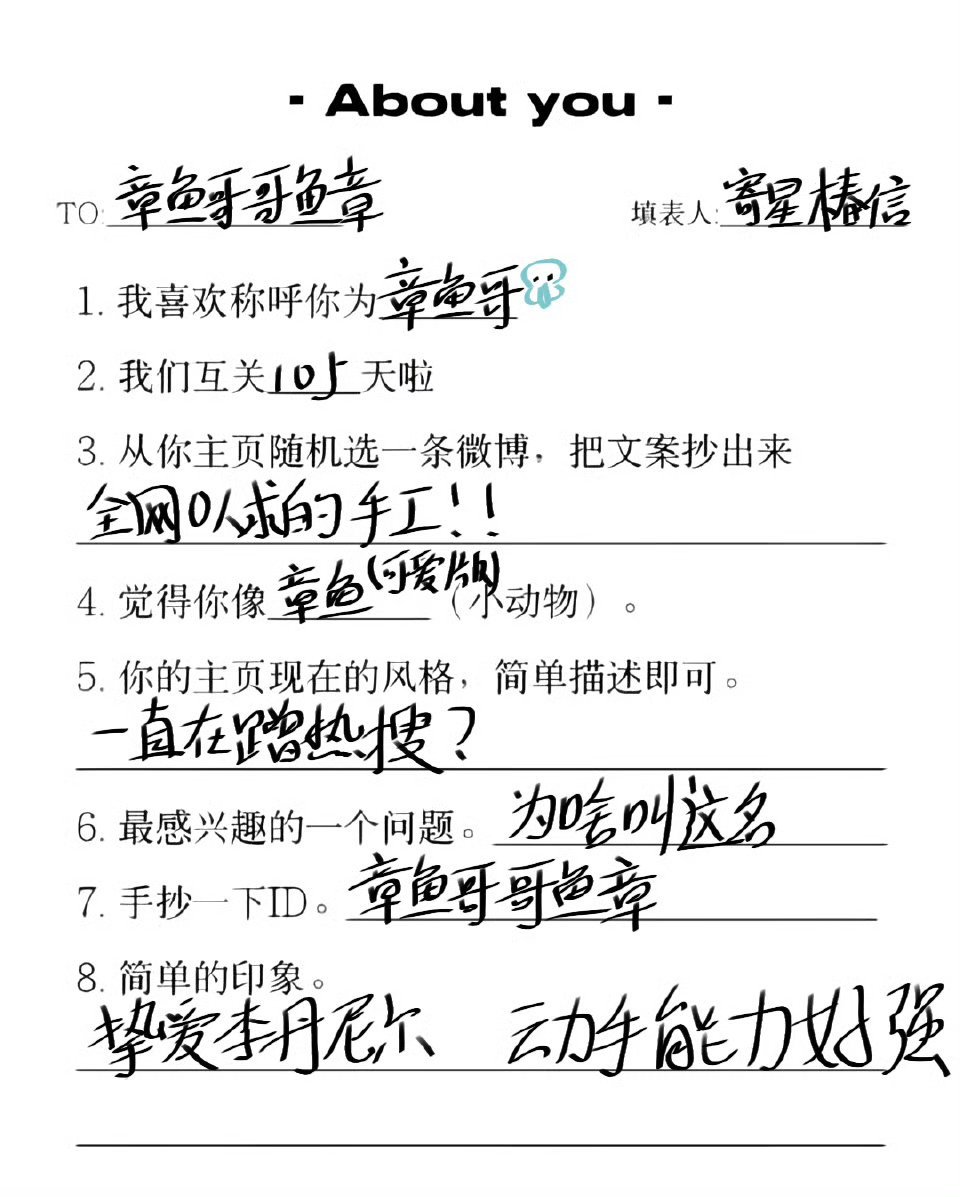 - About you -
TO: 章鱼哥哥鱼章 填表人: 寄星椿信
1. 我喜欢称呼你为章鱼哥
2. 我们互关105天啦
3. 从你主页随机选一条微博，把文案抄出来
全网0人求的手工！！
4. 觉得你像章鱼(可爱版)（小动物）。
5. 你的主页现在的风格，简单描述即可。
一直在蹭热搜？
6. 最感兴趣的一个问题。为啥叫这名
7. 手抄一下ID。章鱼哥哥鱼章
8. 简单的印象。
挚爱李丹尼尔 动手能力好强